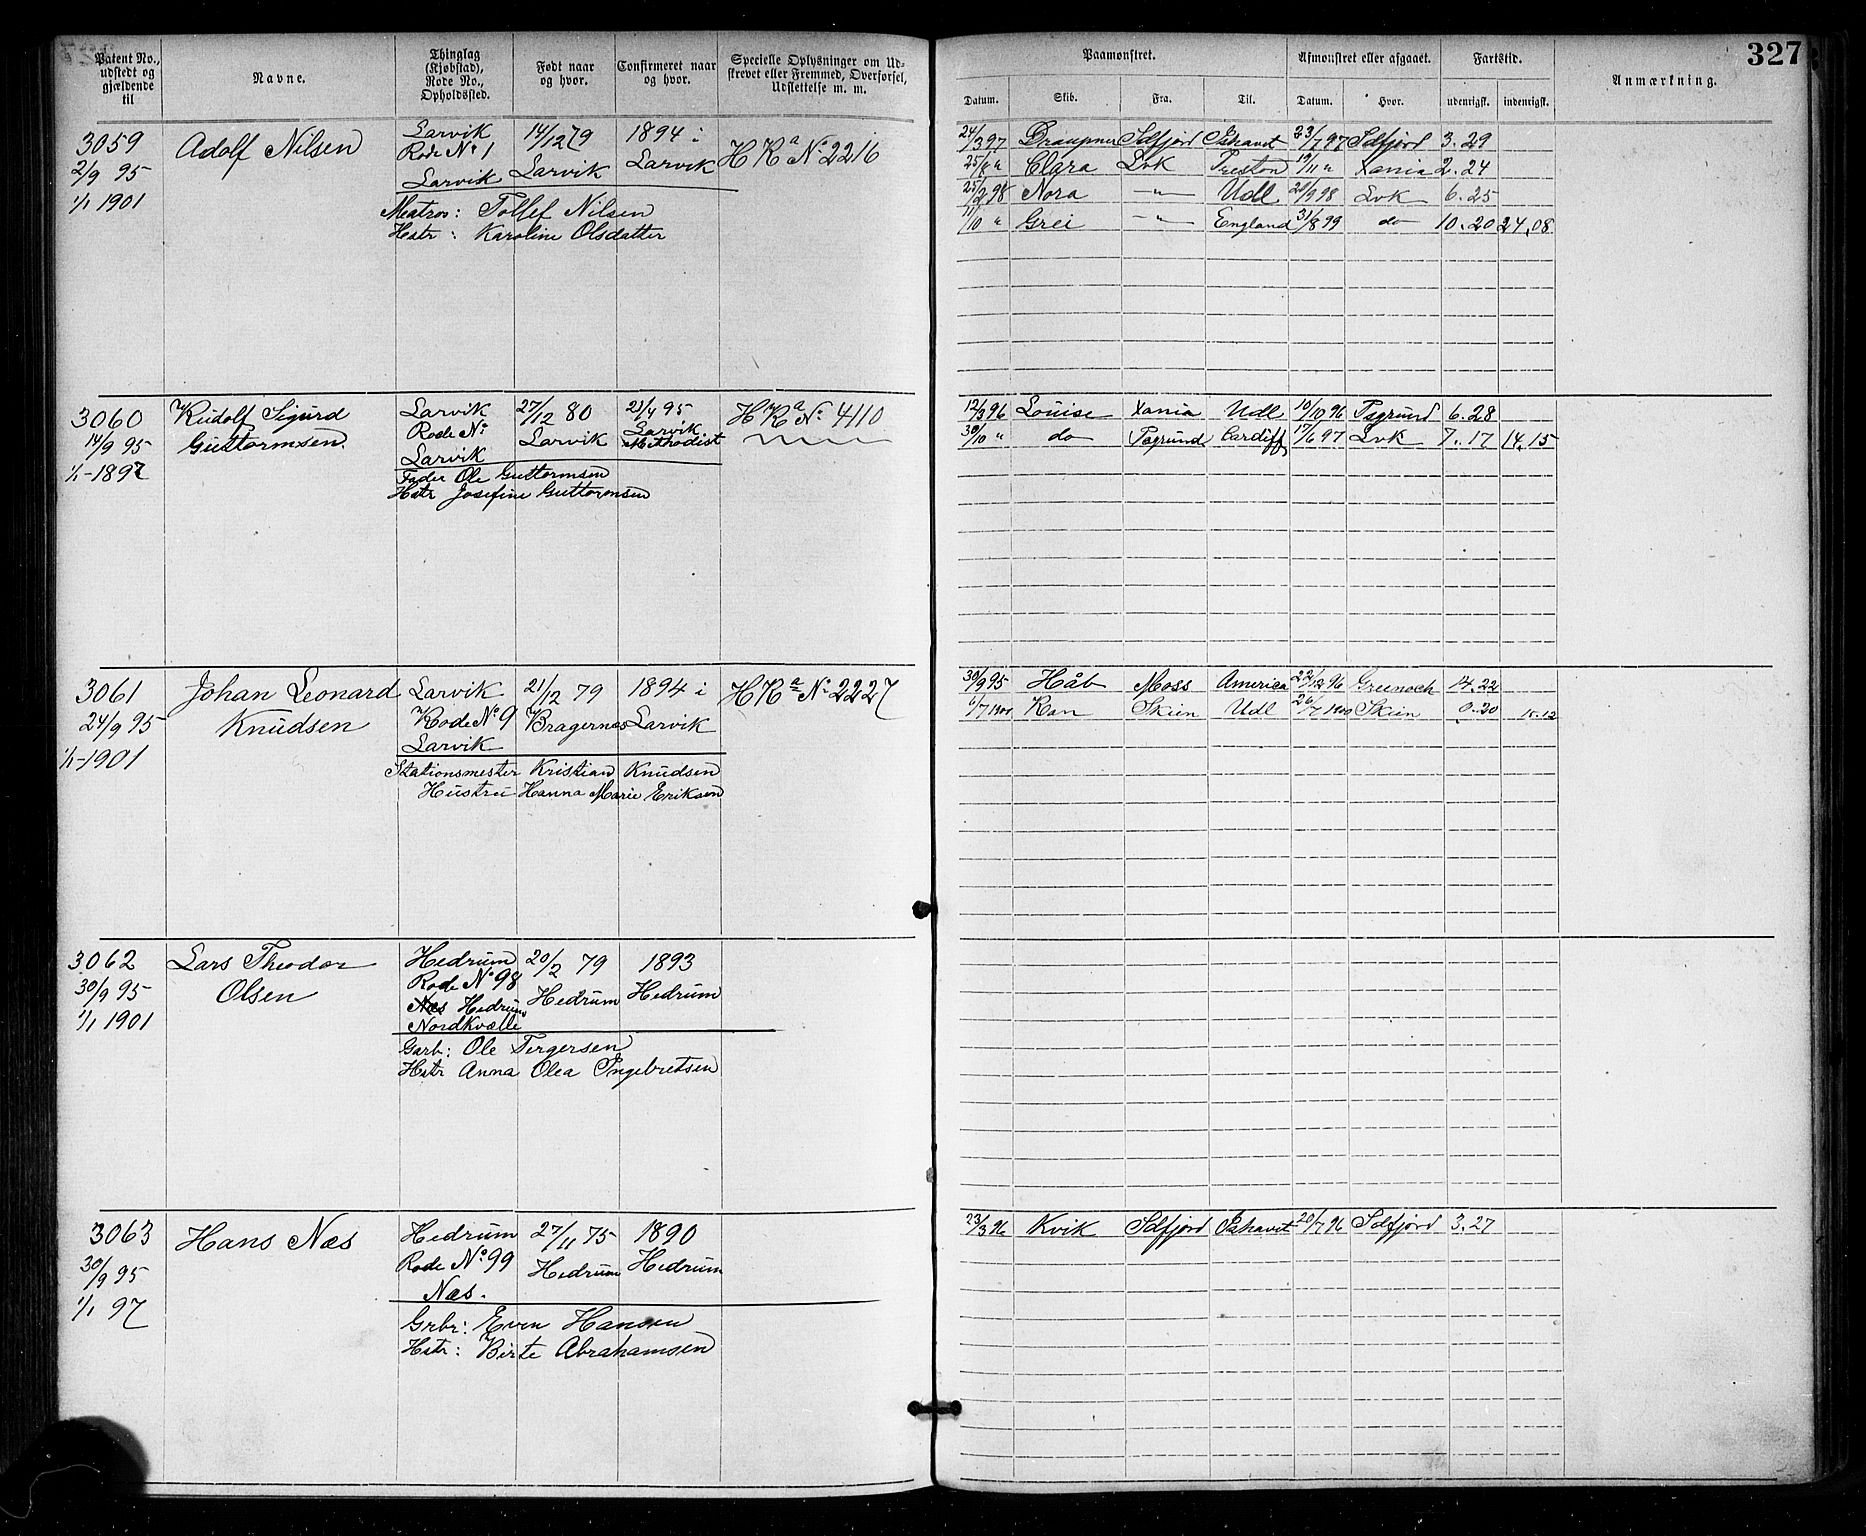 327
Patent No., udstedt og gjældende til
Navne.
Thinglag (Kjøbstad), Rode No., Opholdssted.
Født naar og hvor.
Confirmeret naar og hvor.
Specielle Oplysninger om Udskrevet eller Fremmed, Overførsel, Udslettelse m. m.
Paamonstret.
Datum. Skib. Fra. Til.
Afmonstret eller afgaaet.
Datum. Hvor.
Fartstid.
udenrigsk. indenrigsk.
Anmærkning.
3059
2/9 95
1/1 1901
Adolf Nilsen
Larvik
Rode No 1
Larvik
14/12 79
Larvik
1894 i
Larvik
H Ra No 2216
Matros: Tollef Nilsen
Hstr: Karoline Olsdatter
24/3 97 Draupner Sdfjord Ishavet 23/7 97 Sdfjord 3.29
25/8 " Clara Lvk Preston 19/11 " Xania 2.24
25/2 98 Nora —"— Udl 21/9 98 Lvk 6.25
11/10 " Grei —"— England 31/8 99 do 10.20 24.08
3060
14/9 95
1/1-1897
Rudolf Sigurd
Guttormsen.
Larvik
Rode No
Larvik
27/12 80
Larvik
21/4 95
Larvik
Methodist
H Ra No 4110
Fader Ole Guttormsen
Hstr Josefine Guttormsen
12/3 96 Louise Xania Udl 10/10 96 Psgrund 6.28
30/10 " do Psgrund Cardiff 17/6 97 Lvk 7.17 14.15
3061
24/9 95
1/1-1901
Johan Leonard
Knudsen
Larvik
Rode No 9
Larvik
21/12 79
Bragernes
1894 i
Larvik
H Ra No 2227
Stationsmester Kristian Knudsen
Hustru Hanna Marie Eriksen
30/9 95 Håb Moss America 22/12 96 Greenoch 14.22
6/7 1900 Ran Skien Udl 26/7 1900 Skien 0.20 15.12
3062
30/9 95
1/1 1901
Lars Theodor
Olsen
Hedrum
Rode No 98
Næs Hedrum
Nordkvelle
20/2 79
Hedrum
1893
Hedrum
Garb: Ole Tergersen
Hstr Anna Olea Ingebretsen
3063
30/9 95
1/1 97
Hans Næs
Hedrum
Rode No 99
Næs.
27/11 75
Hedrum
1890
Hedrum
Grbr: Even Hansen
Hstr: Birte Abrahamsen
23/3 96 Kvik Sdfjord Ishavet 20/7 96 Sdfjord 3.27